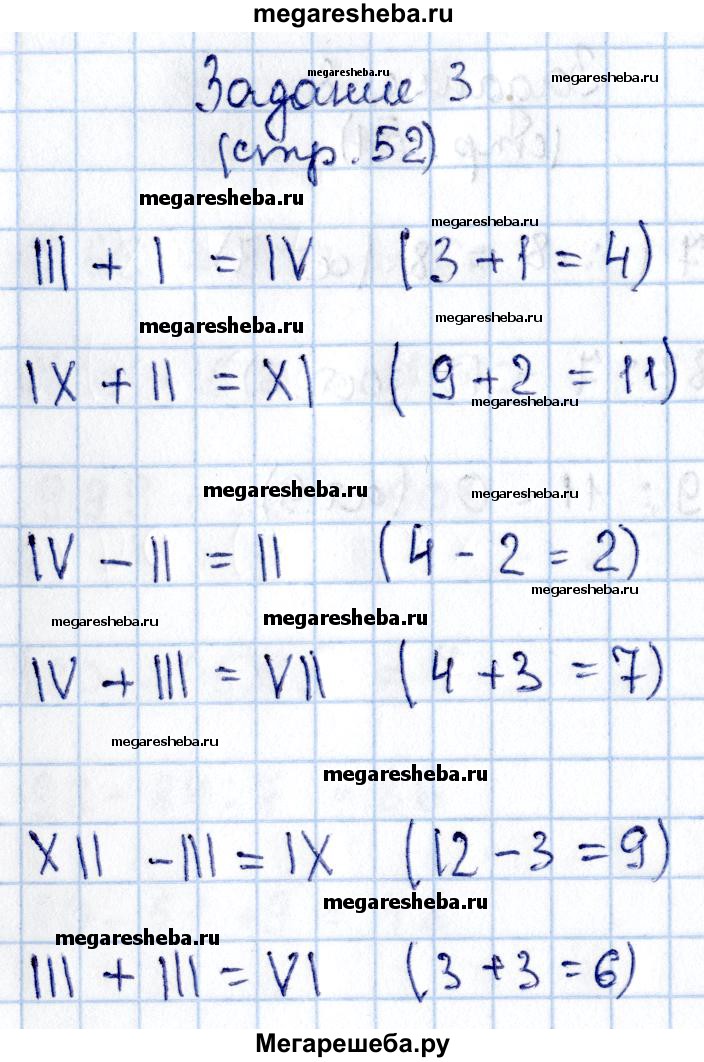 megaresheba.ru
Задание 3
megaresheba.ru
megaresheba.ru
(стр. 52)
megaresheba.ru
megaresheba.ru
III + I = IV (3 + 1 = 4)
megaresheba.ru
megaresheba.ru
IX + II = XI (9 + 2 = 11)
megaresheba.ru
megaresheba.ru
megaresheba.ru
IV - II = II (4 - 2 = 2)
megaresheba.ru
megaresheba.ru
megaresheba.ru
IV + III = VII (4 + 3 = 7)
megaresheba.ru
megaresheba.ru
XII - III = IX (12 - 3 = 9)
megaresheba.ru
megaresheba.ru
III + III = VI (3 + 3 = 6)
Мегарешеба.ру